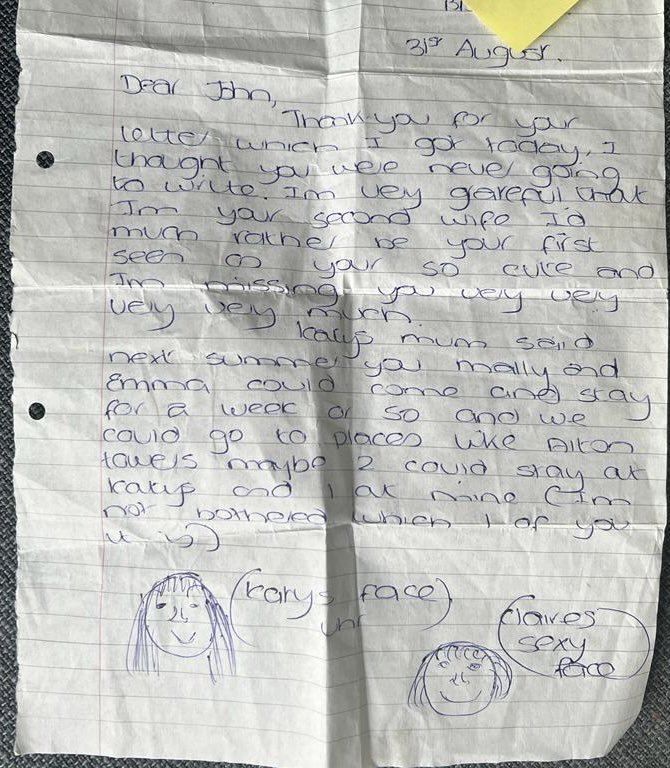 31st August.
Dear John,
Thankyou for your
letter which I got today, I
thought you were never going
to write. Im very grateful that
Im your second wife Id
much rather be your first
seen as your so cute and
Im missing you very very
very very much.
Katys mum said
next summer you mally and
Emma could come and stay
for a week or so and we
could go to places like Alton
towers maybe 2 could stay at
katys and 1 at mine (Im
not bothered which 1 of you
it is)
(Katys face)
(Claires
sexy
face